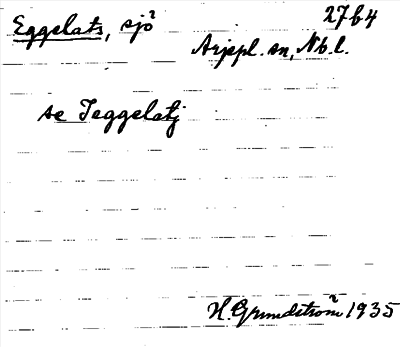 Eggelats, sjö 27b4
Arjepl. sn, Nb. l.
se Jeggelatj
H. Grundström 1935